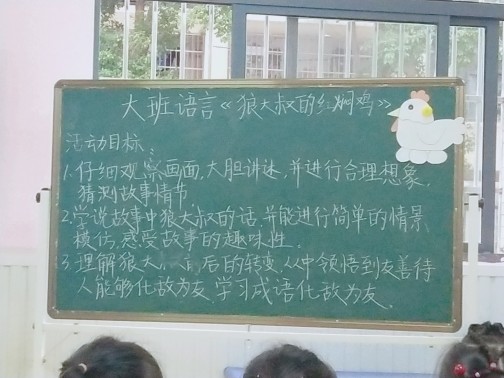 大班语言《狼大叔的红焖鸡》
活动目标:
1.仔细观察画面,大胆讲述,并进行合理想象,
猜测故事情节.
2.学说故事中狼大叔的话,并能进行简单的情景
模仿,感受故事的趣味性.
3.理解狼大 前后的转变,从中领悟到友善待
人能够化敌为友,学习成语化敌为友.